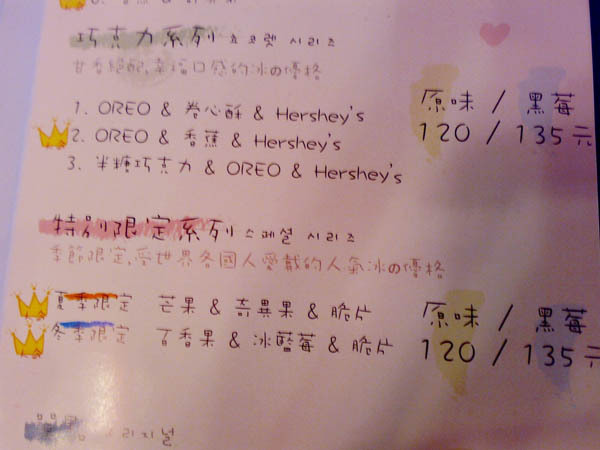 巧克力系列 쵸코렛 시리즈
甘香絕配,幸福口感的冰の優格
原味 / 黑莓
120 / 135 元
1. OREO & 卷心酥 & Hershey's
2. OREO & 香蕉 & Hershey's
3. 半糖巧克力 & OREO & Hershey's
特別限定系列 스페셜 시리즈
季節限定,受世界各國人愛戴的人氣冰の優格
原味 / 黑莓
120 / 135 元
夏季限定 芒果 & 奇異果 & 脆片
冬季限定 百香果 & 冰藍莓 & 脆片
리지널